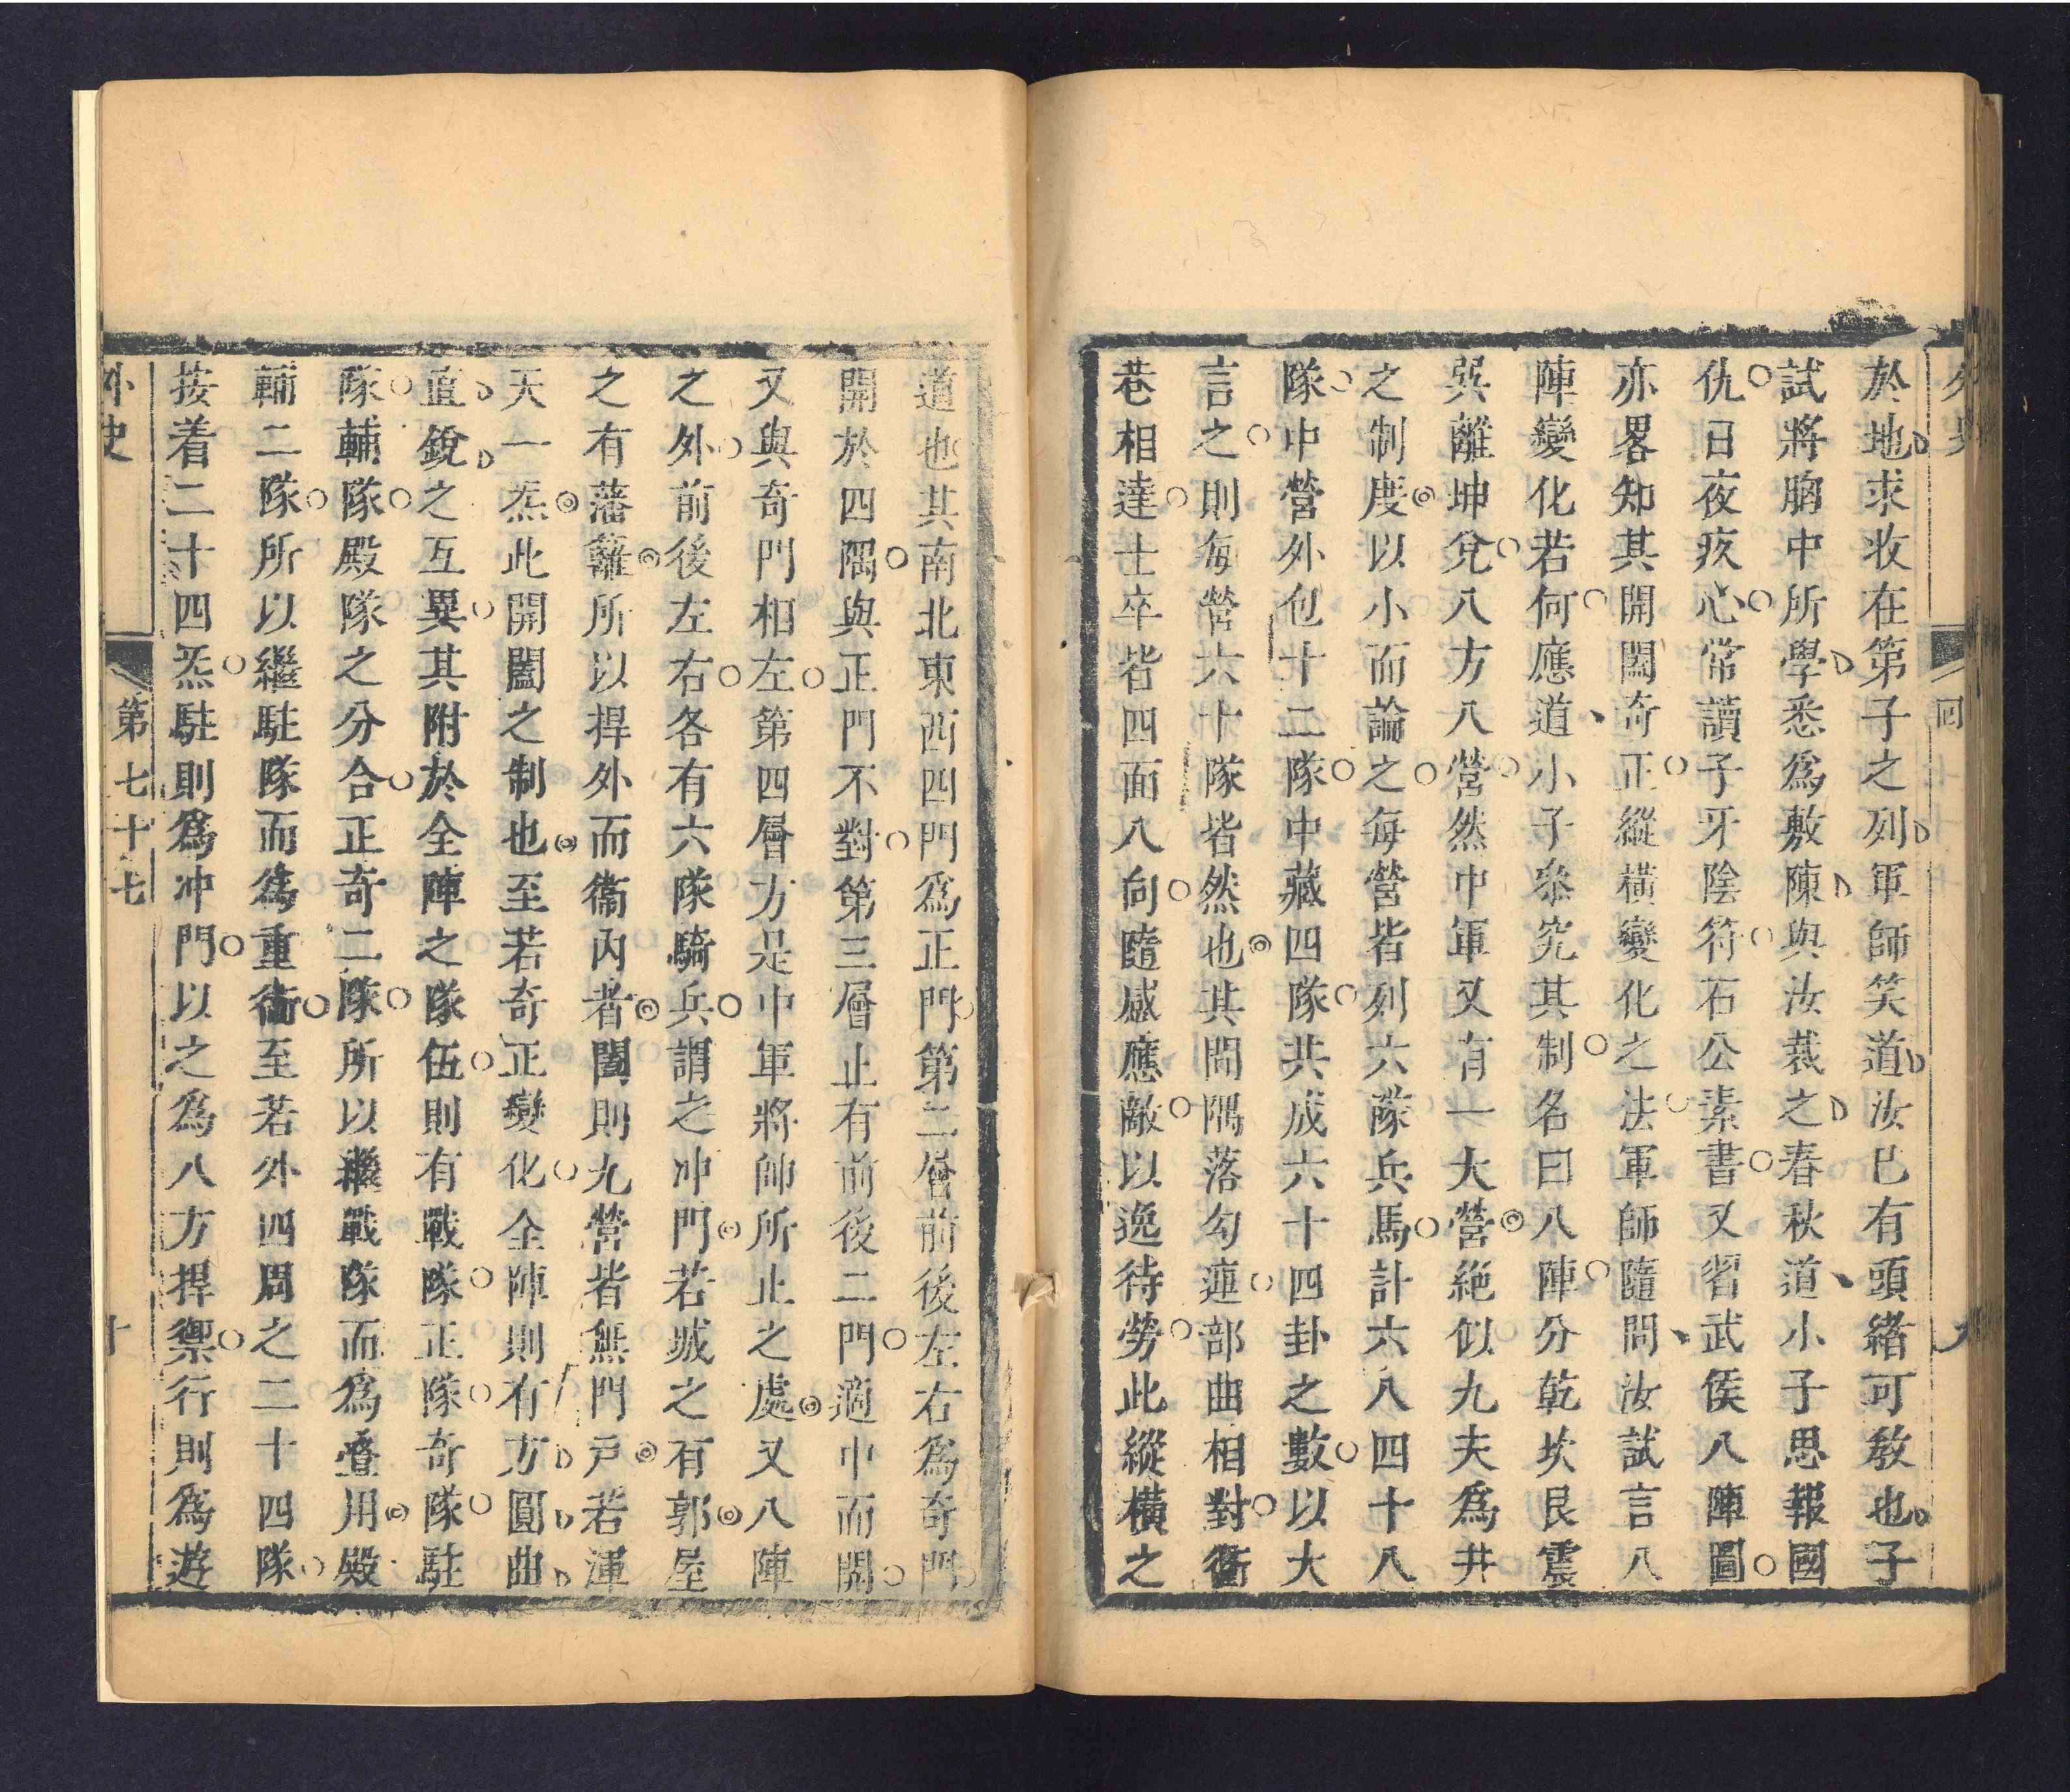 於地求收在第子之列軍師笑道汝已有頭緒可教也子
試將胸中所學悉爲敷陳與汝裁之春秋道小子思報國
仇日夜疚心常讀子牙陰符石公素書又習武侯八陣圖
亦畧知其開闔奇正縱橫變化之法軍師隨問汝試言八
陣變化若何應道小子叅究其制名曰八陣分乾坎艮震
巽離坤兌八方八營然中軍又有一大營絶似九夫爲井
之制度以小而論之每營皆列六隊兵馬計六八四十八
隊中營外包十二隊中藏四隊共成六十四卦之數以大
言之則每營六十隊皆然也其間隅落勾連部曲相對衝
巷相達士卒皆四面八向隨感應敵以逸待勞此縱橫之
道也其南北東西四門爲正門第二層前後左右爲奇門
開於四隅與正門不對第三層止有前後二門適中而開
又與奇門相左第四層方是中軍將帥所止之處又八陣
之外前後左右各有六隊騎兵謂之冲門若城之有郭屋
之有藩籬所以捍外而衞內者闔則九營者無門戸若渾
天一炁此開闔之制也至若奇正變化全陣則有方圓曲
直銳之互異其附於全陣之隊伍則有戰隊正隊奇隊駐
隊輔隊殿隊之分合正奇二隊所以繼戰隊而爲疊用殿
輔二隊所以繼駐隊而爲重衞至若外四周之二十四隊
按着二十四炁駐則爲冲門以之爲八方捍禦行則爲遊
外史
第七十七
十